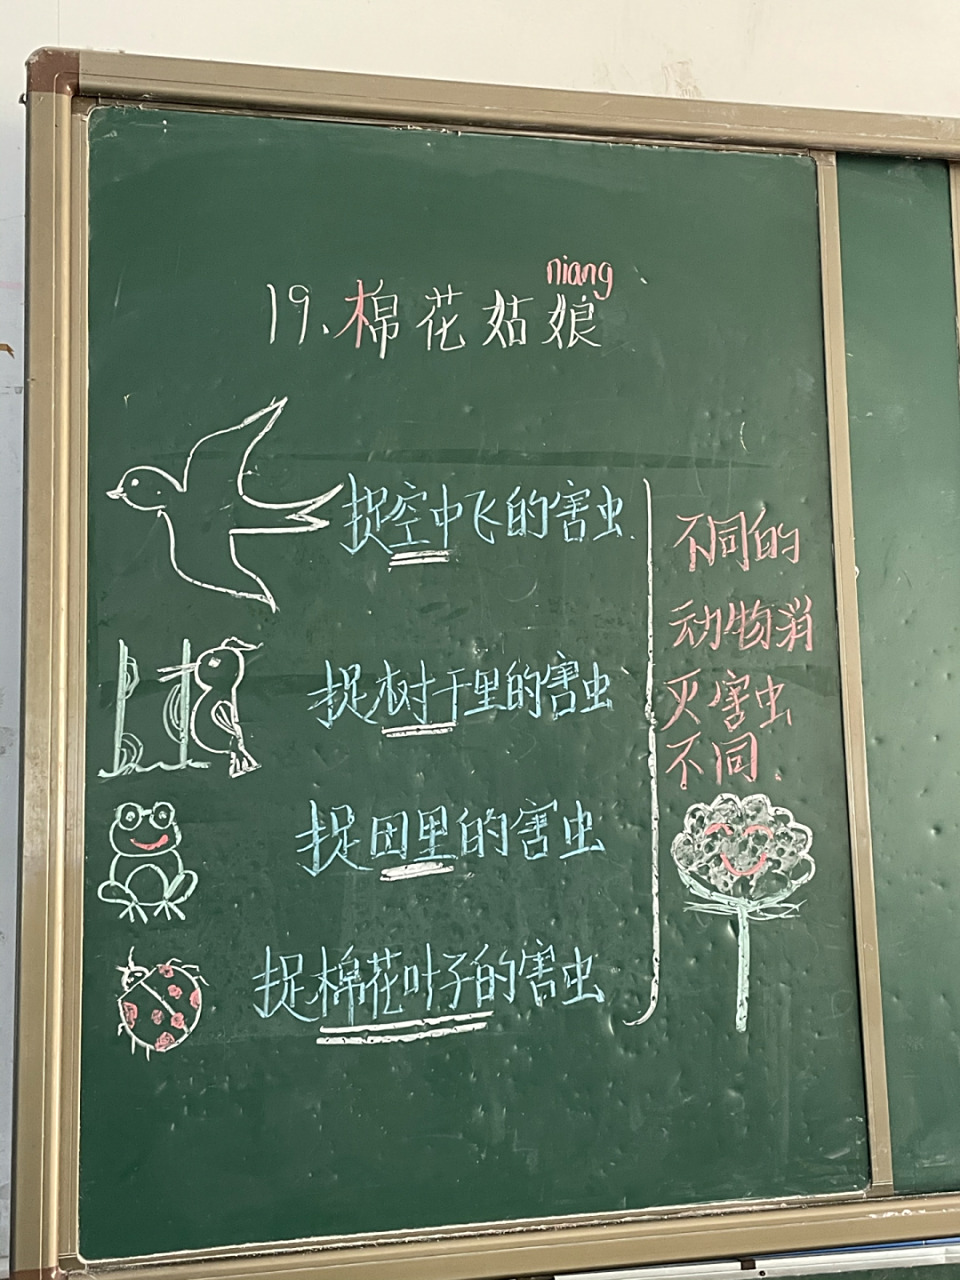 niang
19.棉花姑娘
捉空中飞的害虫.
捉树干里的害虫
捉田里的害虫
捉棉花叶子的害虫
不同的
动物消
灭害虫
不同.